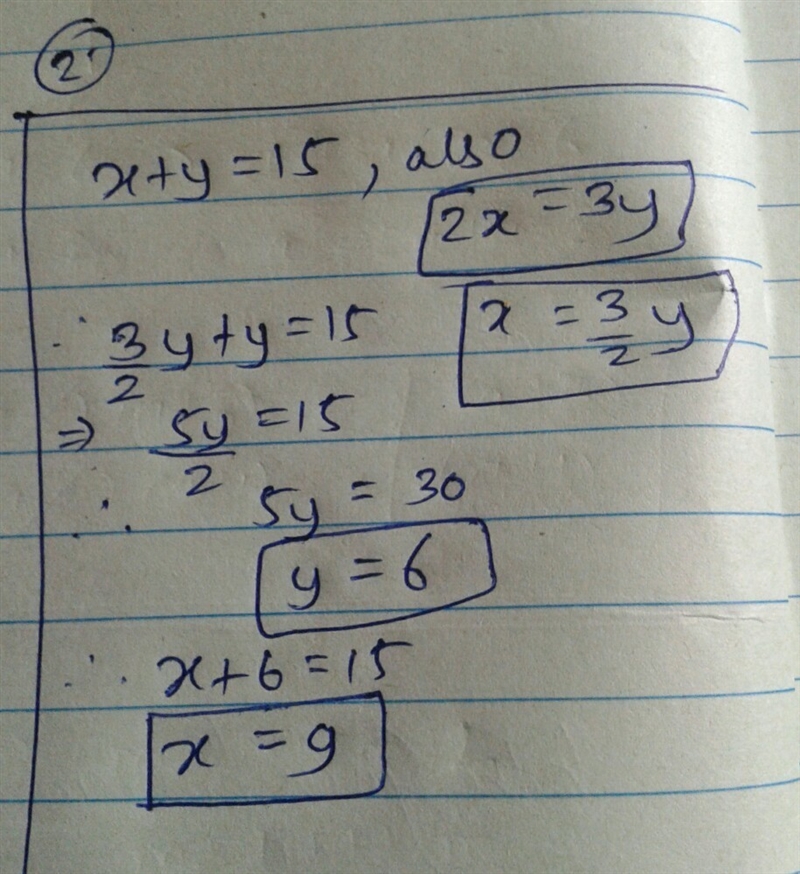 2.
x+y=15, also
2x = 3y
x = 3/2 y
∴ 3/2 y + y = 15
⇒ 5y/2 = 15
∴ 5y = 30
y = 6
∴ x+6=15
x = 9